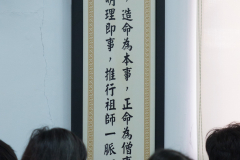 ，造命為本事，正命為僧事
明理即事，推行祖師一脈